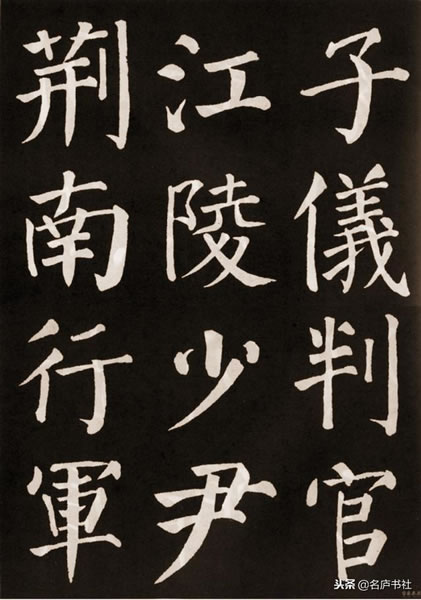 子儀判官
江陵少尹
荆南行軍
头条@名庐书社